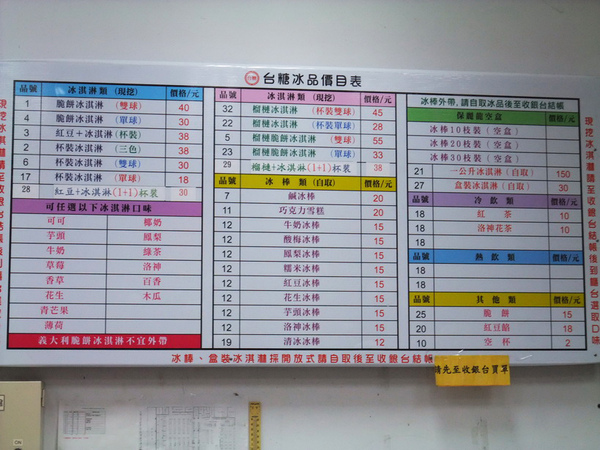 台糖冰品價目表
品號 冰淇淋類（現挖） 價格/元
1 脆餅冰淇淋（雙球） 40
4 脆餅冰淇淋（單球） 30
3 紅豆+冰淇淋（杯裝） 38
2 杯裝冰淇淋（三色） 38
6 杯裝冰淇淋（雙球） 30
17 杯裝冰淇淋（單球） 18
28 紅豆+冰淇淋(1+1)杯裝 30
可任選以下冰淇淋口味
可可 椰奶
芋頭 鳳梨
牛奶 綠茶
草莓 洛神
香草 百香
花生 木瓜
青芒果
薄荷
義大利脆餅冰淇淋不宜外帶
品號 冰淇淋類（現挖） 價格/元
32 榴槤冰淇淋（杯裝雙球） 45
22 榴槤冰淇淋（杯裝單球） 28
5 榴槤脆餅冰淇淋（雙球） 55
23 榴槤脆餅冰淇淋（單球） 33
29 榴槤+冰淇淋(1+1)杯裝 38
品號 冰棒類（自取） 價格/元
7 鹹冰棒 20
11 巧克力雪糕 20
12 牛奶冰棒 15
12 酸梅冰棒 15
12 鳳梨冰棒 15
12 糯米冰棒 15
12 紅豆冰棒 15
12 花生冰棒 15
12 芋頭冰棒 15
12 洛神冰棒 15
19 清冰冰棒 12
冰棒外帶，請自取冰品後至收銀台結帳
保麗龍空盒
冰棒10枝裝（空盒）
冰棒20枝裝（空盒）
冰棒30枝裝（空盒）
21 一公升冰淇淋（自取） 150
27 盒裝冰淇淋（自取） 30
品號 冷飲類 價格/元
18 紅茶 10
18 洛神花茶 10
品號 熱飲類 價格/元
18
18
品號 其他類 價格/元
25 脆餅 15
20 紅豆餡 18
10 空杯 2
冰棒、盒裝冰淇淋採開放式請自取後至收銀台結帳
請先至收銀台買單
現挖冰淇淋請至收銀台結帳後到櫃台選取口味